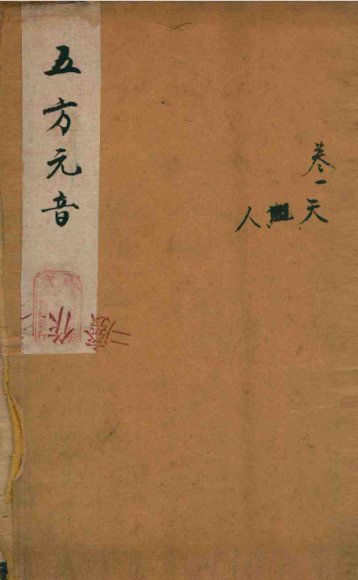 五方元音
卷一天
人